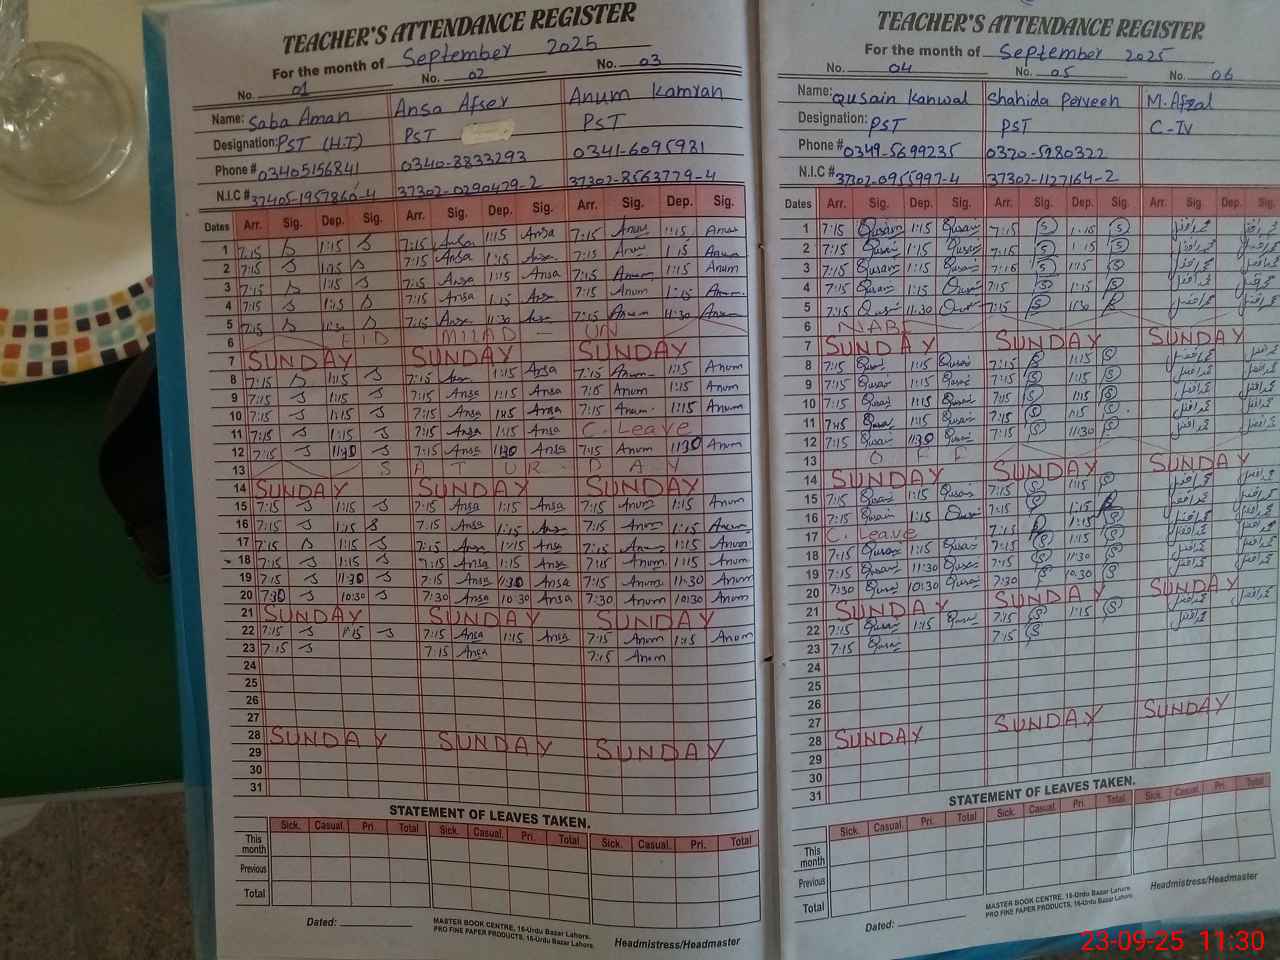 TEACHER'S ATTENDANCE REGISTER
For the month of September 2025
No. 01 No. 02 No. 03
Name: Saba Aman Ansa Afser Anum Kamran
Designation: PST (H.T) PST PST
Phone # 03405156841 0340-8833293 0341-6095981
N.I.C # 37405-1957860-4 37302-0290479-2 37302-8563779-4
Dates Arr. Sig. Dep. Sig. Arr. Sig. Dep. Sig. Arr. Sig. Dep. Sig.
1 7:15 1:15 7:15 Ansa 1:15 Ansa 7:15 Anum 1:15 Anum
2 7:15 1:15 7:15 Ansa 1:15 Ansa 7:15 Anum 1:15 Anum
3 7:15 1:15 7:15 Ansa 1:15 Ansa 7:15 Anum 1:15 Anum
4 7:15 1:15 7:15 Ansa 1:15 Ansa 7:15 Anum 1:15 Anum
5 7:15 11:30 7:15 Ansa 11:30 Ansa 7:15 Anum 11:30 Anum
6 EID MILAD - UN
7 SUNDAY SUNDAY SUNDAY
8 7:15 1:15 7:15 Ansa 1:15 Ansa 7:15 Anum 1:15 Anum
9 7:15 1:15 7:15 Ansa 1:15 Ansa 7:15 Anum 1:15 Anum
10 7:15 1:15 7:15 Ansa 1:15 Ansa 7:15 Anum 1:15 Anum
11 7:15 1:15 7:15 Ansa 1:15 Ansa C. Leave
12 7:15 11:30 7:15 Ansa 11:30 Ansa 7:15 Anum 11:30 Anum
13 SATURDAY
14 SUNDAY SUNDAY SUNDAY
15 7:15 1:15 7:15 Ansa 1:15 Ansa 7:15 Anum 1:15 Anum
16 7:15 1:15 7:15 Ansa 1:15 Ansa 7:15 Anum 1:15 Anum
17 7:15 1:15 7:15 Ansa 1:15 Ansa 7:15 Anum 1:15 Anum
18 7:15 1:15 7:15 Ansa 1:15 Ansa 7:15 Anum 1:15 Anum
19 7:15 11:30 7:15 Ansa 11:30 Ansa 7:15 Anum 11:30 Anum
20 7:30 10:30 7:30 Ansa 10:30 Ansa 7:30 Anum 10:30 Anum
21 SUNDAY SUNDAY SUNDAY
22 7:15 1:15 7:15 Ansa 1:15 Ansa 7:15 Anum 1:15 Anum
23 7:15 7:15 Ansa 7:15 Anum
24
25
26
27
28 SUNDAY SUNDAY SUNDAY
29
30
31
STATEMENT OF LEAVES TAKEN.
Sick. Casual. Pri. Total Sick. Casual. Pri. Total Sick. Casual. Pri. Total
This month
Previous
Total
Dated:
MASTER BOOK CENTRE, 16-Urdu Bazar Lahore.
PRO FINE PAPER PRODUCTS, 16-Urdu Bazar Lahore.
Headmistress/Headmaster
TEACHER'S ATTENDANCE REGISTER
For the month of September 2025
No. 04 No. 05 No. 06
Name: Qusain Kanwal Shahida Perveen M. Afzal
Designation: PST PST C-IV
Phone # 0349-5699235 0320-5980322
N.I.C # 37302-0955997-4 37302-1127164-2
Dates Arr. Sig. Dep. Sig. Arr. Sig. Dep. Sig. Arr. Sig. Dep. Sig.
1 7:15 Qusain 1:15 Qusain 7:15 1:15 محمد افضل محمد افضل
2 7:15 Qusain 1:15 Qusain 7:16 1:15 محمد افضل محمد افضل
3 7:15 Qusain 1:15 Qusain 7:16 1:15 محمد افضل محمد افضل
4 7:15 Qusain 1:15 Qusain 7:15 1:15 محمد افضل محمد افضل
5 7:15 Qusain 11:30 7:15 11:30 محمد افضل محمد افضل
6 NABI
7 SUNDAY SUNDAY SUNDAY
8 7:15 Qusain 1:15 Qusain 7:15 1:15 محمد افضل محمد افضل
9 7:15 Qusain 1:15 Qusain 7:15 1:15 محمد افضل محمد افضل
10 7:15 Qusain 1:15 Qusain 7:15 1:15 محمد افضل محمد افضل
11 7:15 Qusain 1:15 Qusain 7:15 1:15 محمد افضل محمد افضل
12 7:15 Qusain 11:30 Qusain 7:15 11:30 محمد افضل محمد افضل
13 OFF
14 SUNDAY SUNDAY SUNDAY
15 7:15 Qusain 1:15 Qusain 7:15 1:15 محمد افضل محمد افضل
16 7:15 Qusain 1:15 Qusain 7:15 1:15 محمد افضل محمد افضل
17 C. Leave 7:15 1:15 محمد افضل محمد افضل
18 7:15 Qusain 1:15 Qusain 7:15 1:15 محمد افضل محمد افضل
19 7:15 Qusain 11:30 Qusain 7:15 11:30 محمد افضل محمد افضل
20 7:30 Qusain 10:30 Qusain 7:30 10:30 محمد افضل محمد افضل
21 SUNDAY SUNDAY SUNDAY
22 7:15 Qusain 1:15 Qusain 7:15 1:15 محمد افضل محمد افضل
23 7:15 Qusain 7:15 محمد افضل
24
25
26
27
28 SUNDAY SUNDAY SUNDAY
29
30
31
STATEMENT OF LEAVES TAKEN.
Sick. Casual. Pri. Total Sick. Casual. Pri. Total Sick. Casual. Pri. Total
This month
Previous
Total
Dated:
MASTER BOOK CENTRE, 16-Urdu Bazar Lahore.
PRO FINE PAPER PRODUCTS, 16-Urdu Bazar Lahore.
Headmistress/Headmaster
23-09-25 11:30